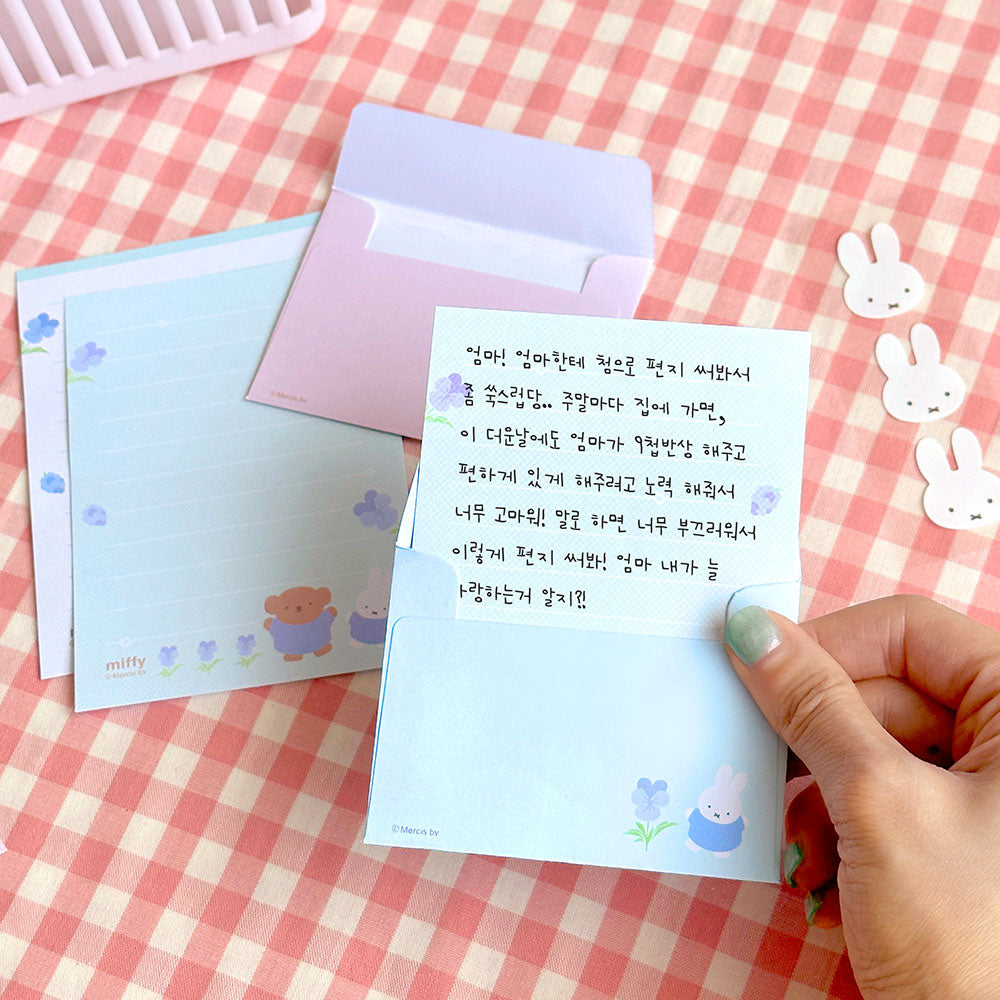 엄마! 엄마한테 첨으로 편지 써봐서
좀 쑥스럽당.. 주말마다 집에 가면,
이 더운날에도 엄마가 9첩반상 해주고
편하게 있게 해주려고 노력 해줘서
너무 고마워! 말로 하면 너무 부끄러워서
이렇게 편지 써봐! 엄마 내가 늘
사랑하는거 알지?!
miffy
©Mercis bv
©Mercis bv
©Mercis bv